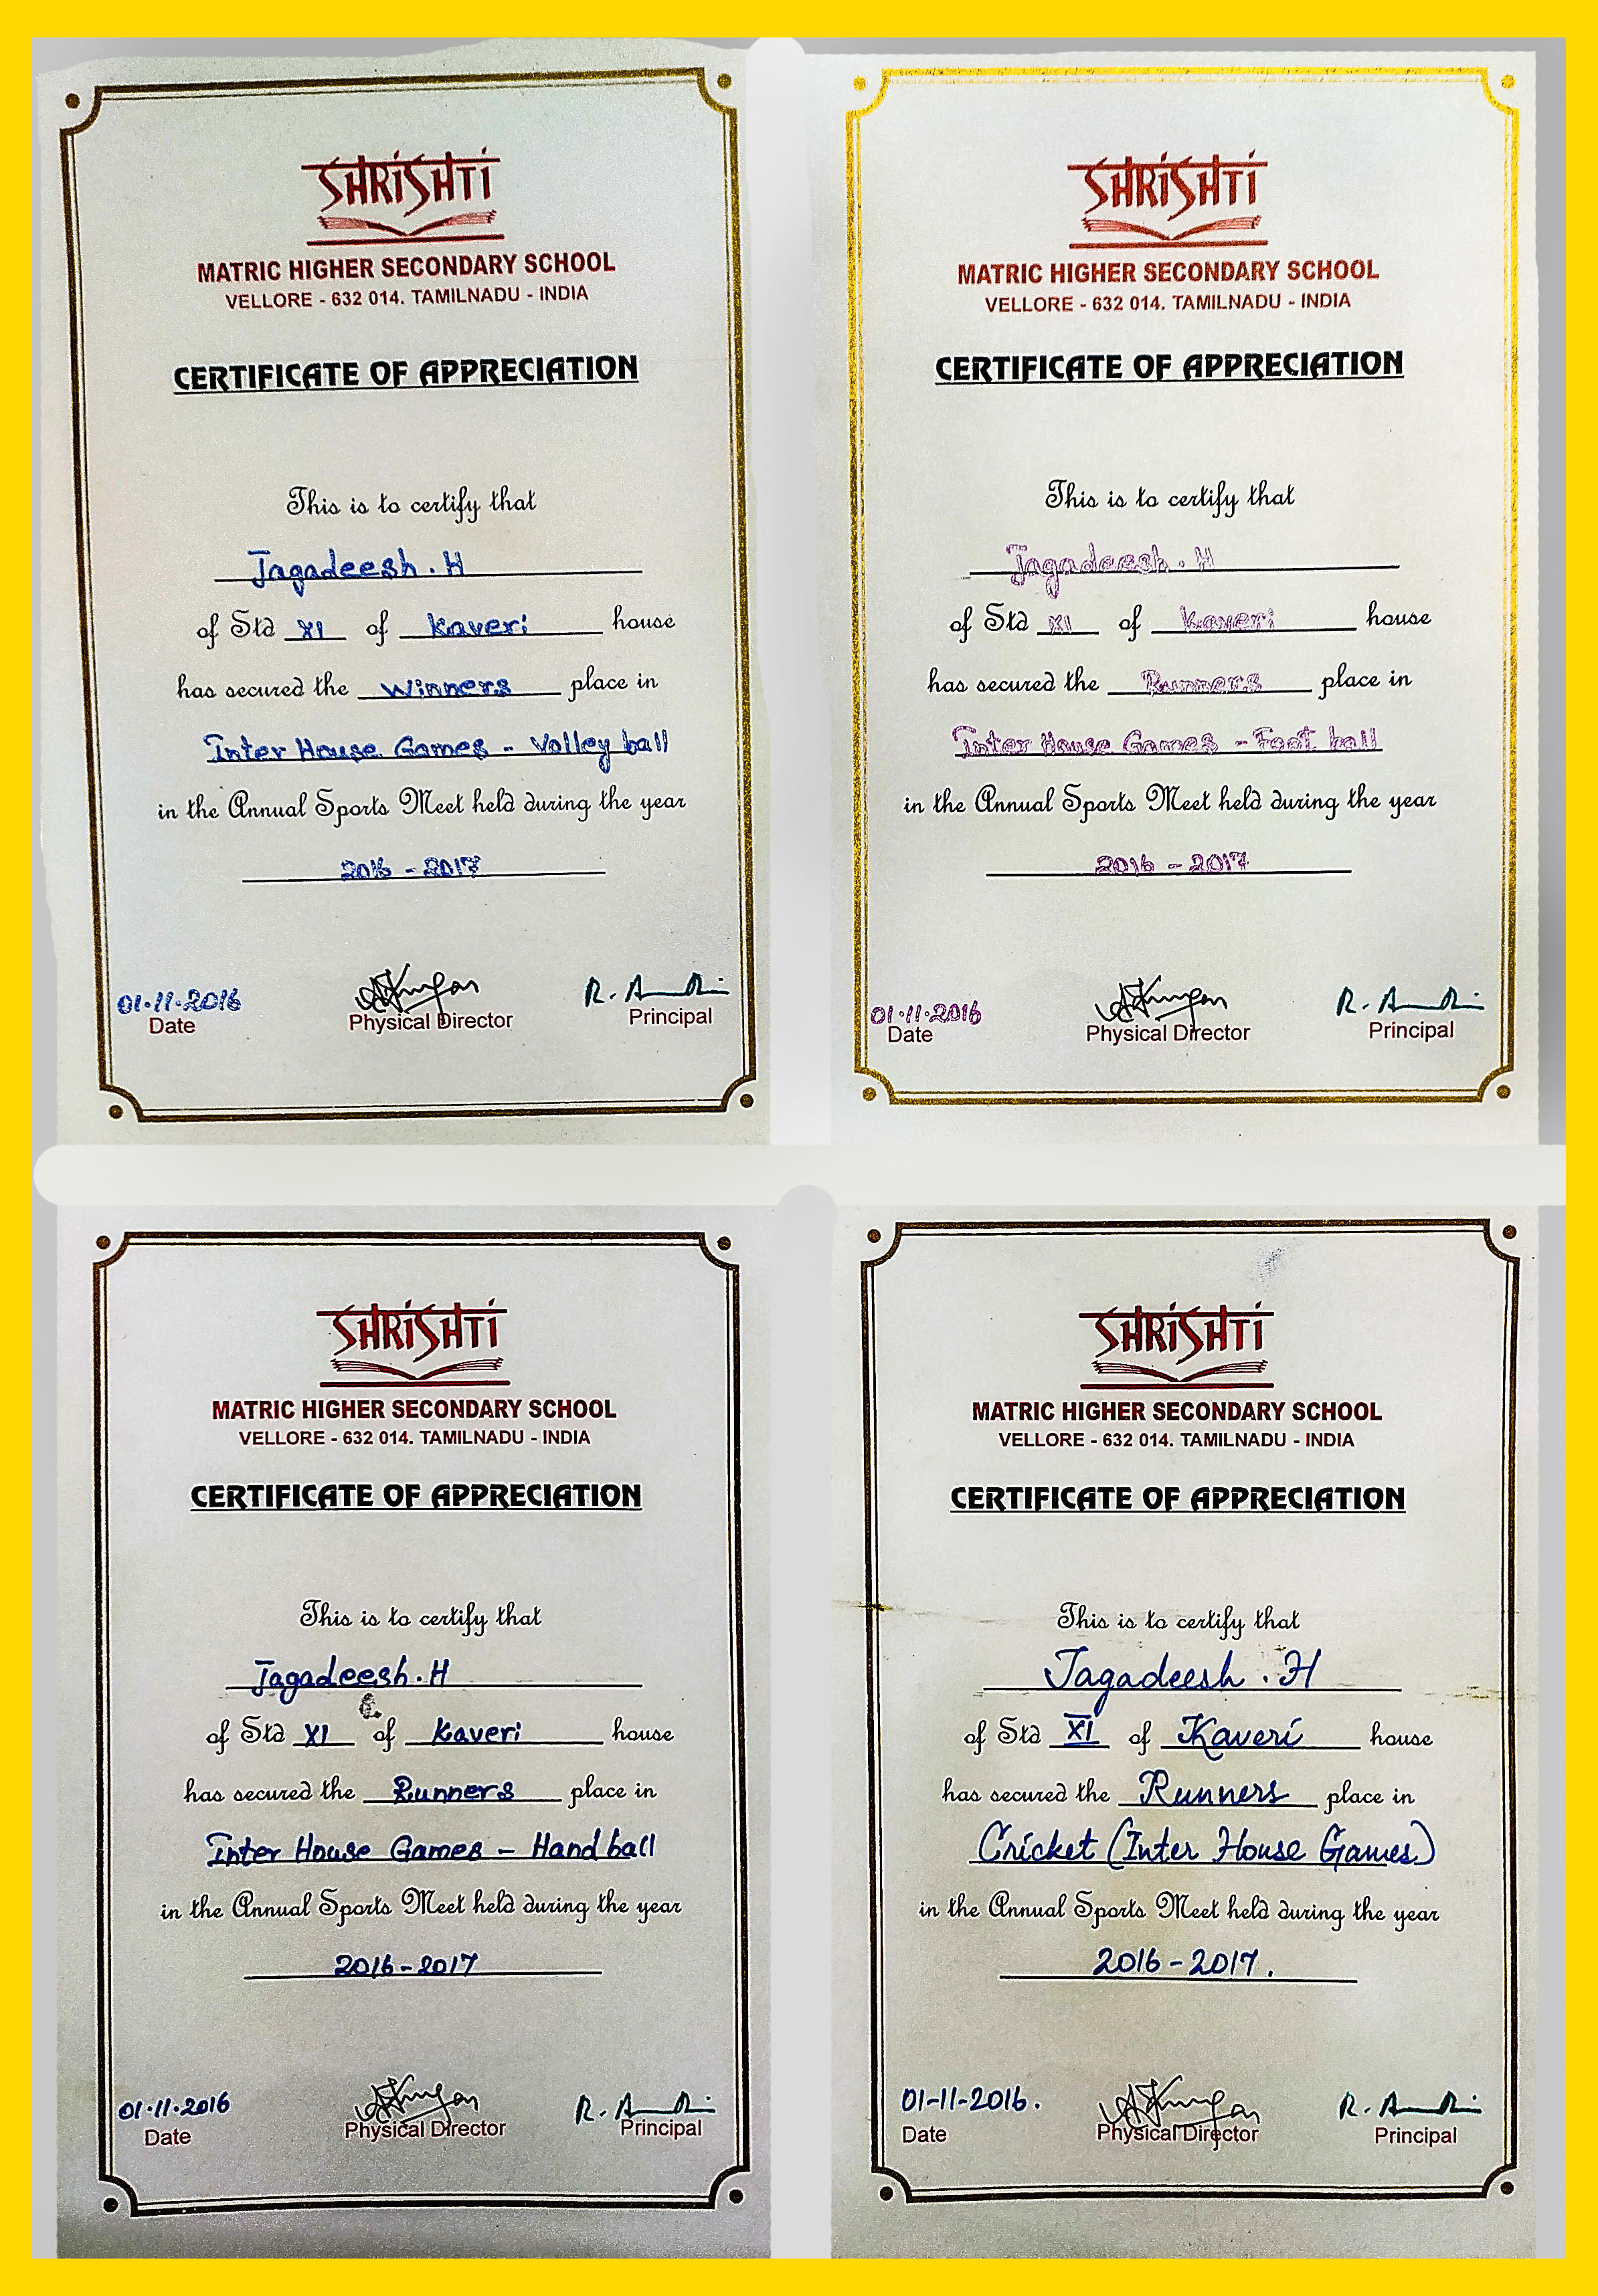 SHRISHTI
MATRIC HIGHER SECONDARY SCHOOL
VELLORE - 632 014. TAMILNADU - INDIA
CERTIFICATE OF APPRECIATION
This is to certify that
Jagadeesh . H
of Std XI of Kaveri house
has secured the Winners place in
Inter House Games - Volley ball
in the Annual Sports Meet held during the year
2016 - 2017
01.11.2016
Date Physical Director Principal
SHRISHTI
MATRIC HIGHER SECONDARY SCHOOL
VELLORE - 632 014. TAMILNADU - INDIA
CERTIFICATE OF APPRECIATION
This is to certify that
Jagadeesh . H
of Std XI of Kaveri house
has secured the Runners place in
Inter House Games - Foot ball
in the Annual Sports Meet held during the year
2016 - 2017
01.11.2016
Date Physical Director Principal
SHRISHTI
MATRIC HIGHER SECONDARY SCHOOL
VELLORE - 632 014. TAMILNADU - INDIA
CERTIFICATE OF APPRECIATION
This is to certify that
Jagadeesh . H
of Std XI of Kaveri house
has secured the Runners place in
Inter House Games - Hand ball
in the Annual Sports Meet held during the year
2016 - 2017
01.11.2016
Date Physical Director Principal
SHRISHTI
MATRIC HIGHER SECONDARY SCHOOL
VELLORE - 632 014. TAMILNADU - INDIA
CERTIFICATE OF APPRECIATION
This is to certify that
Jagadeesh . H
of Std XI of Kaveri house
has secured the Runners place in
Cricket (Inter House Games)
in the Annual Sports Meet held during the year
2016 - 2017.
01-11-2016.
Date Physical Director Principal